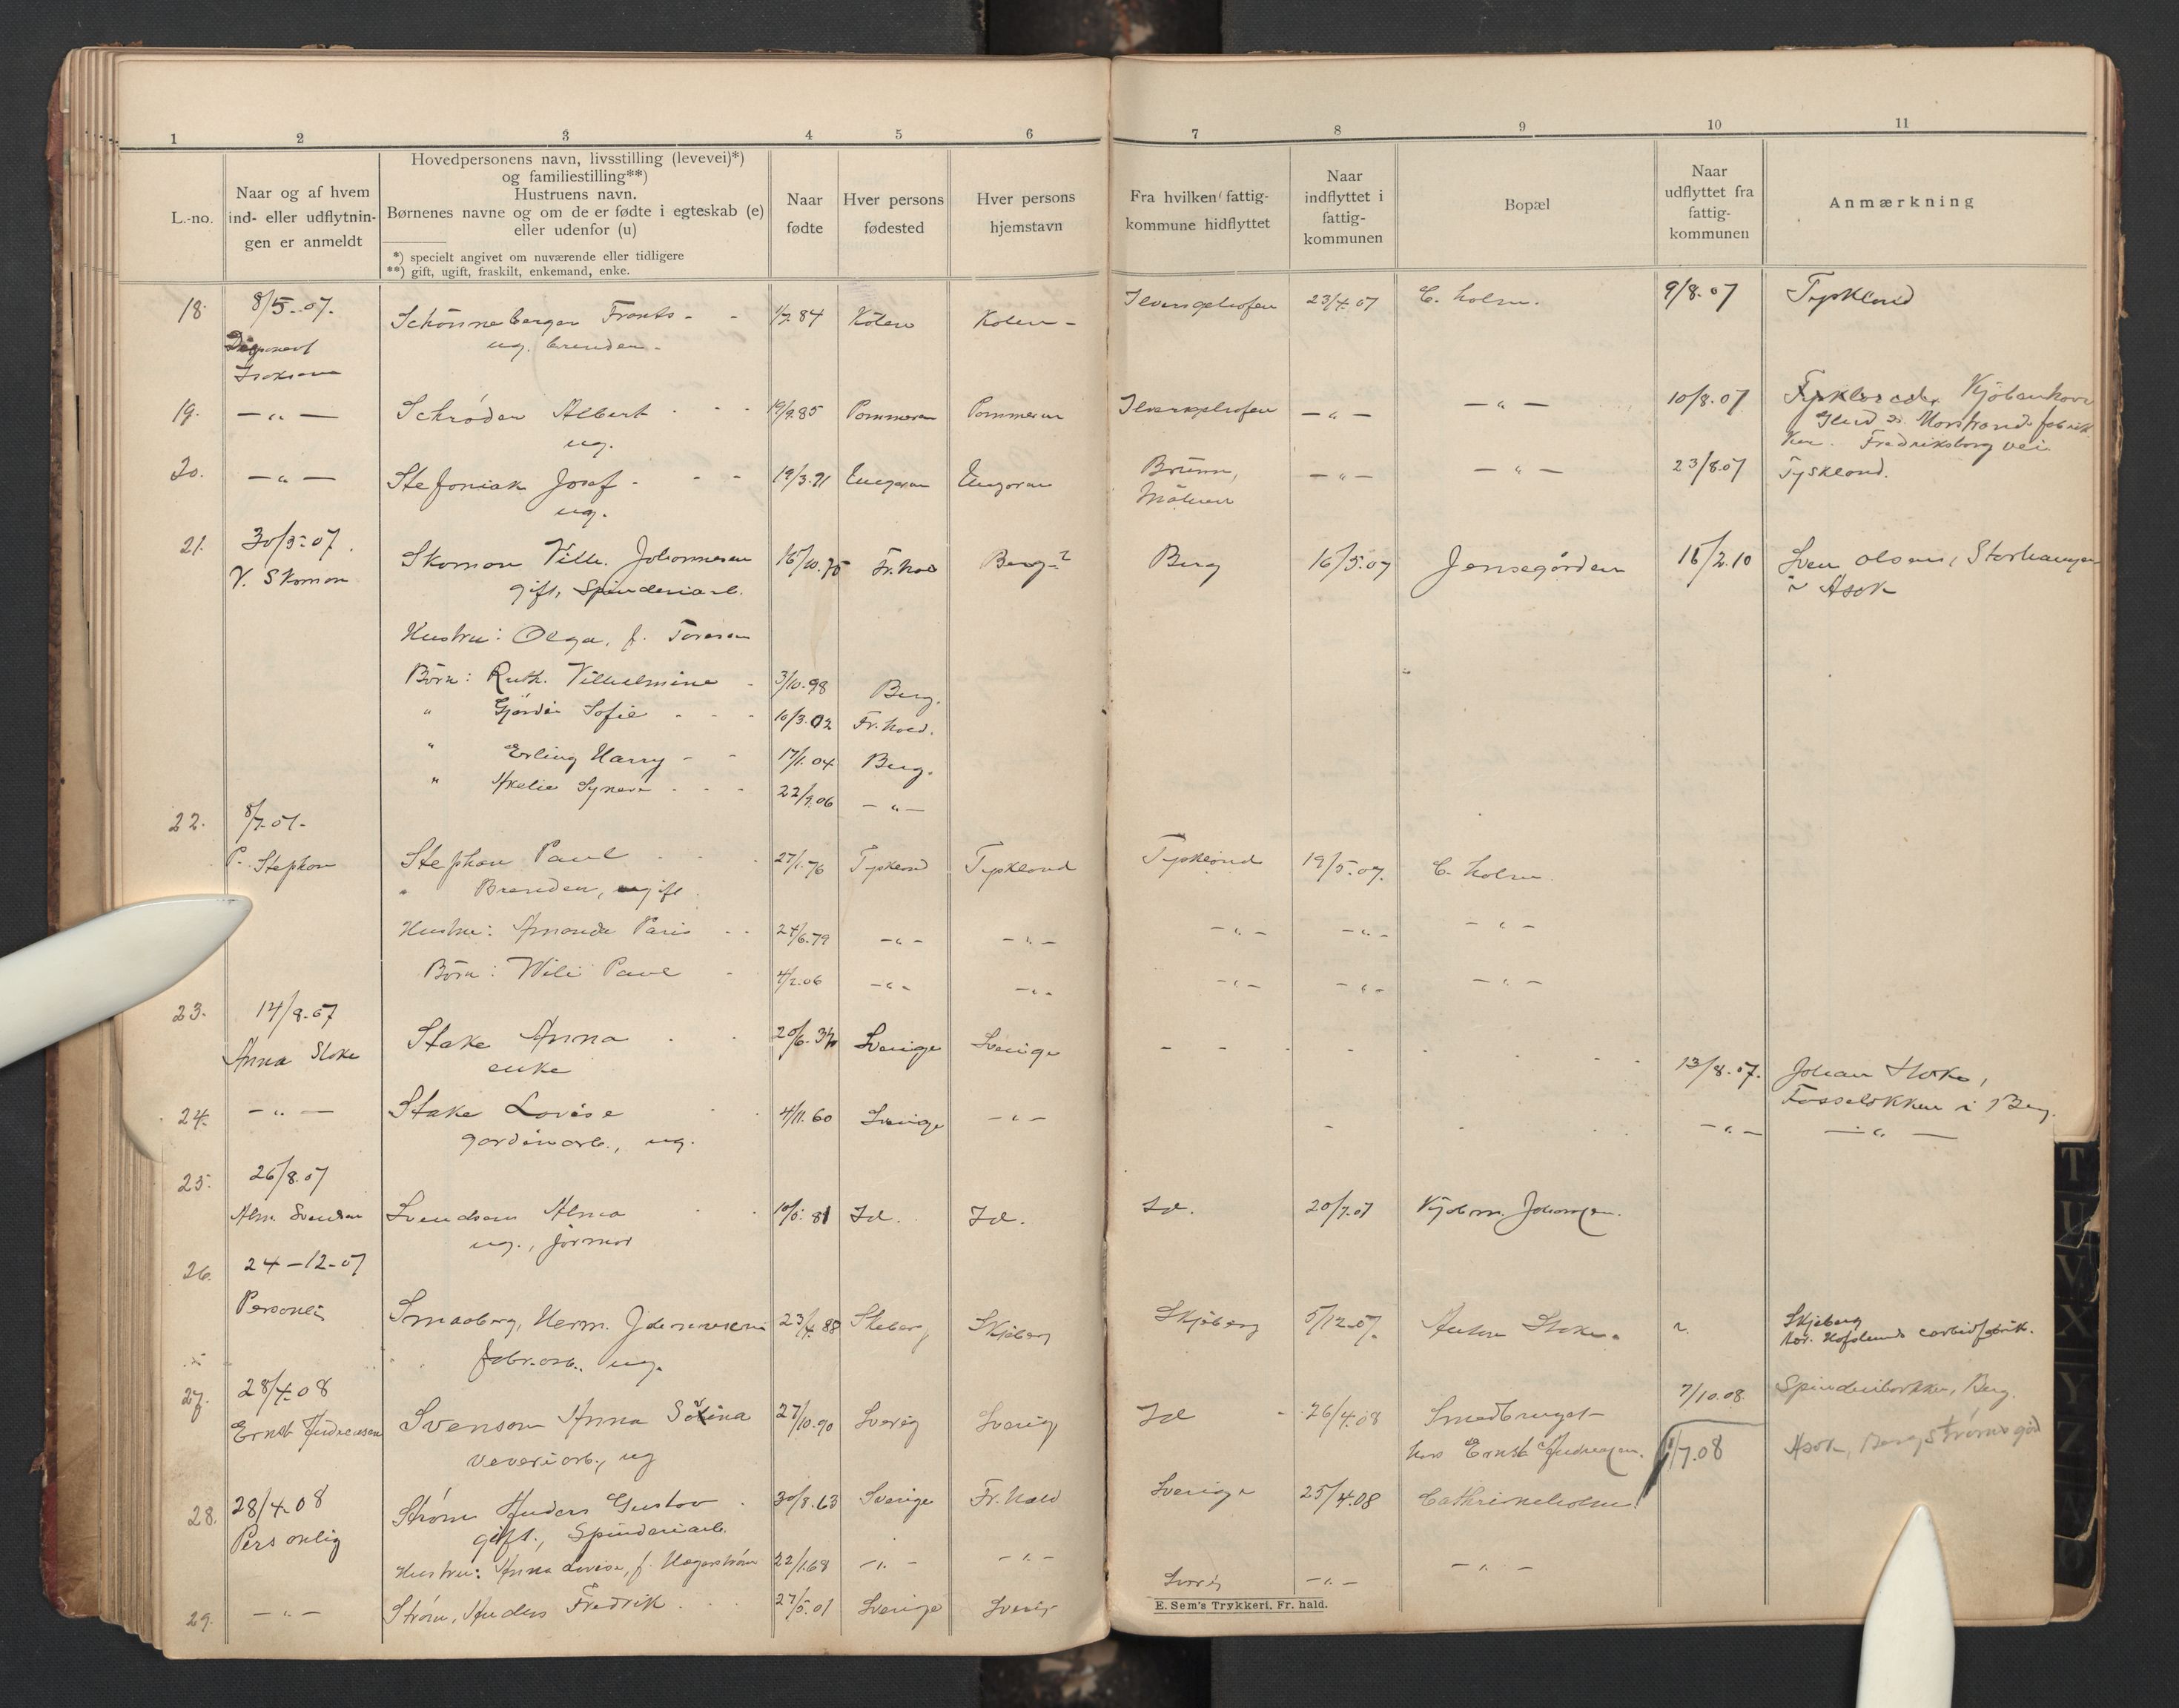 1 2 3 4 5 6 7 8 9 10 11
L.-no.
Naar og af hvem
ind- eller udflytnin-
gen er anmeldt
Hovedpersonens navn, livsstilling (levevei)*)
og familiestilling**)
Hustruens navn.
Børnenes navne og om de er fødte i egteskab (e)
eller udenfor (u)
*) specielt angivet om nuværende eller tidligere
**) gift, ugift, fraskilt, enkemand, enke.
Naar
fødte
Hver persons
fødested
Hver persons
hjemstavn
Fra hvilken fattig-
kommune hidflyttet
Naar
indflyttet i
fattig-
kommunen
Bopæl
Naar
udflyttet fra
fattig-
kommunen
Anmærkning
18. 8/5-07. Schönneberger Frants - - Kölen Kölen - Ilversgehofen 23/4.07 C. holm. 9/8.07 Tyskland
ug. brenden -
Isaksen
19. - " - Schrøder Albert - - - 19/9.85 Pommern Pommern Ilversgehofen - " - - " - 10/8.07 Tyskland, Kjøbenhavn
ug. Glud & Marstrands fabrik
Fredriksborg vei
20. - " - Stefoniak Josef - - - 19/3.91 Ungarn Ungarn Brünn, - " - - " - 23/8.07 Tyskland.
ug. Mähren
21. 30/5-07. Skoman Vilh. Johannesen 16/10.75 Fr.hald Berg? Berg 16/5.07 Jensegården 15/2.10 Sven Olsen, Storhaugen
V. Skoman gift, Spinderiarb. i Asak
Hustru: Olga, f. Toresen
Børn: Ruth. Vilhelmine - 3/10.98 Berg.
" Gjørdis Sofie - - - 10/3.02 Fr.hald.
" Erling Harry - - 17/1.04 Berg.
" Synøve - - - 22/9.06 - " -
22. 8/7-07-
P. Stephan Stephan Paul 27/1.76 Tyskland Tyskland Tyskland 19/5.07. C. holm
" Brenden, gift
Hustru: Amanda Paris - - 24/6.79 - " - - " - - " - - " - - " -
Børn: Wili Paul - 4/2.06 - " - - " - - " - - " - - " -
23. 14/8-07
Anna Stake Stake Anna 20/6.34 Sverige Sverige - - - - - - - 13/8.07. Johan Stake,
enke Fosseløkken i Berg.
24. - " - Stake Lovise 4/11.60 Sverige - " - - - - " - - " -
gardinarb., ug.
25. 26/8.07
Alma Svendsen Svendsen Alma 10/5.81 Id. Id. Id. 20/7.07 Kjøbm. Johansen.
ug., jormor
26. 24-12-07
Personlig Smaaberg, Herm. 23/4.88 Skjeberg Skjeberg Skjeberg 5/12.07. Anton Stoke. Skjeberg
fabr.arb. ug. Hafslunds carbidfabrik.
27. 28/4-08 7/10.08. Berg.
Ernst Andreassen Svenson Anna Sofina 27/10.90 Sverig Sverig Id - 26/4.08 Smedbruget
veveriarb., ug hos Ernst Andreasen. 1/7.08 Asak, Berg, Strøms gård
28. 28/4-08 Strøm Anders Gustav 30/8.63 Sverige Fr.hald Sverige 25/4.08 Cathrineholm
Personlig gift., Spinderiarb.
Hustru: Anna Lovise, f. Hagerstrøm 22/1.68 - " - - " - - " -
29. - " - Strøm, Anders Fredrik 27/5.01 Sverige Sverig Sverig - " -
E. Sem's Trykkeri, Fr. hald.
T
U
V
X
Y
Z